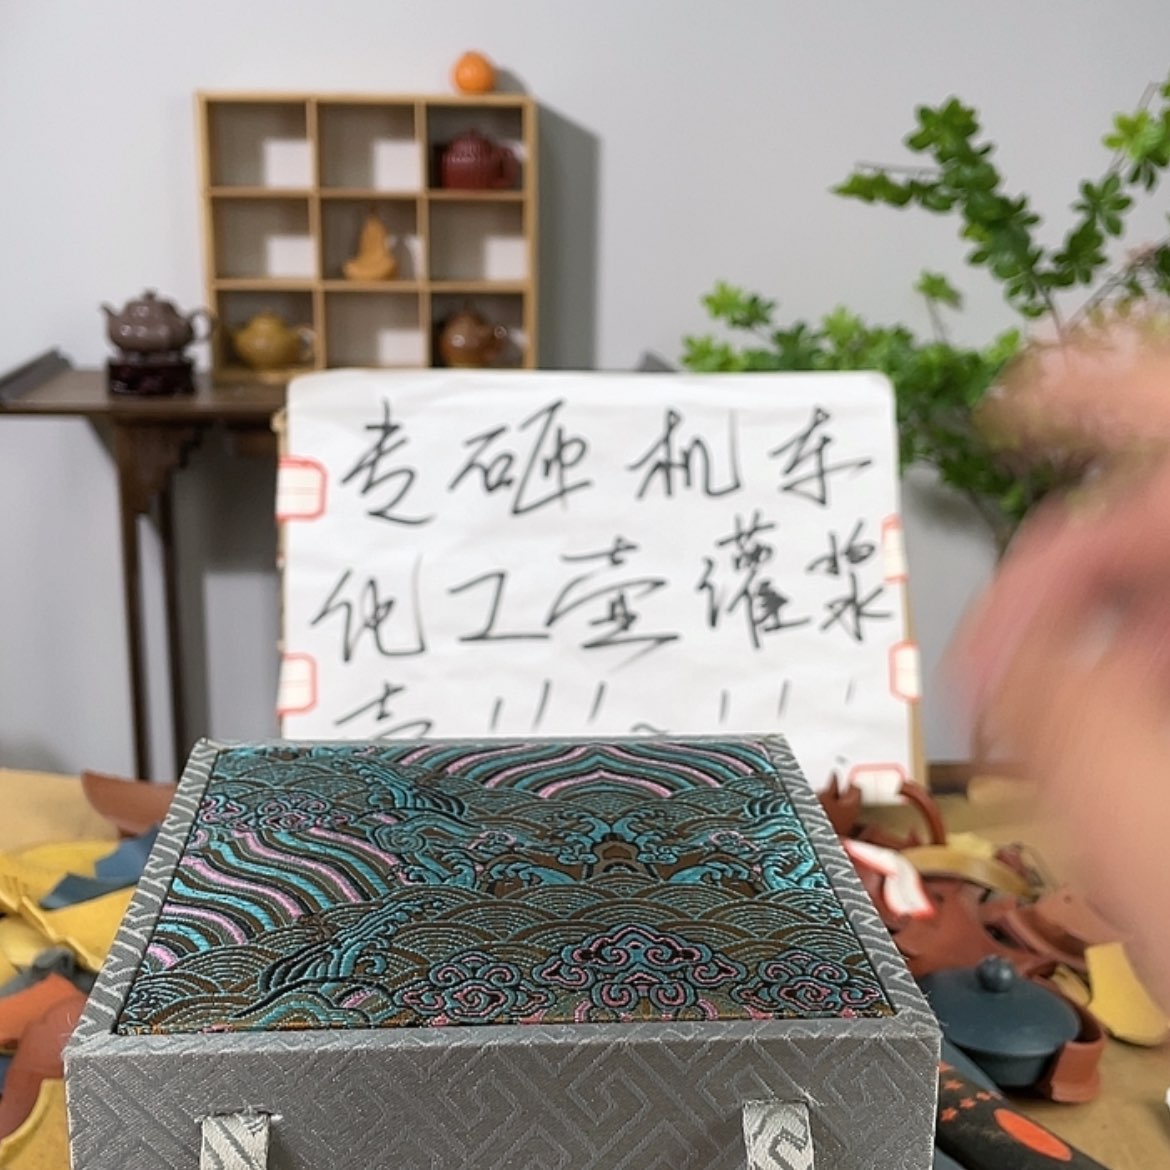 专砸机车
化工壶灌浆
壶